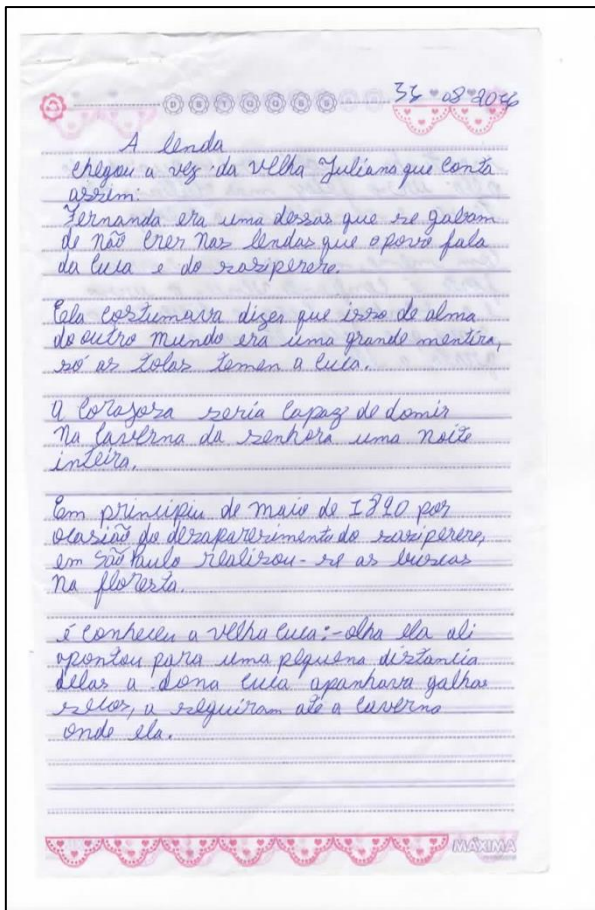 08 2016
A lenda
chegou a vez da velha Juliana que conta
assim:
Fernanda era uma dessas que se gabam
de não crer nas lendas que o povo fala
da cuca e do sasiperere.
Ela costumava dizer que isso de alma
do outro mundo era uma grande mentira,
só as tolas temen a cuca.
a corajosa seria capaz de domir
na caverna da senhora uma noite
inteira.
Em principiu de maio de 1890 por
ocasião do desaparesimento do sasiperere,
em São Paulo realizou-se as buscas
na floresta.
é conheceu a velha cuca:-olha ela ali
apontou para uma pequena distancia
delas a dona cuca apanhava galhos
secos, a seguiram até a caverna
onde ela.
MÁXIMA